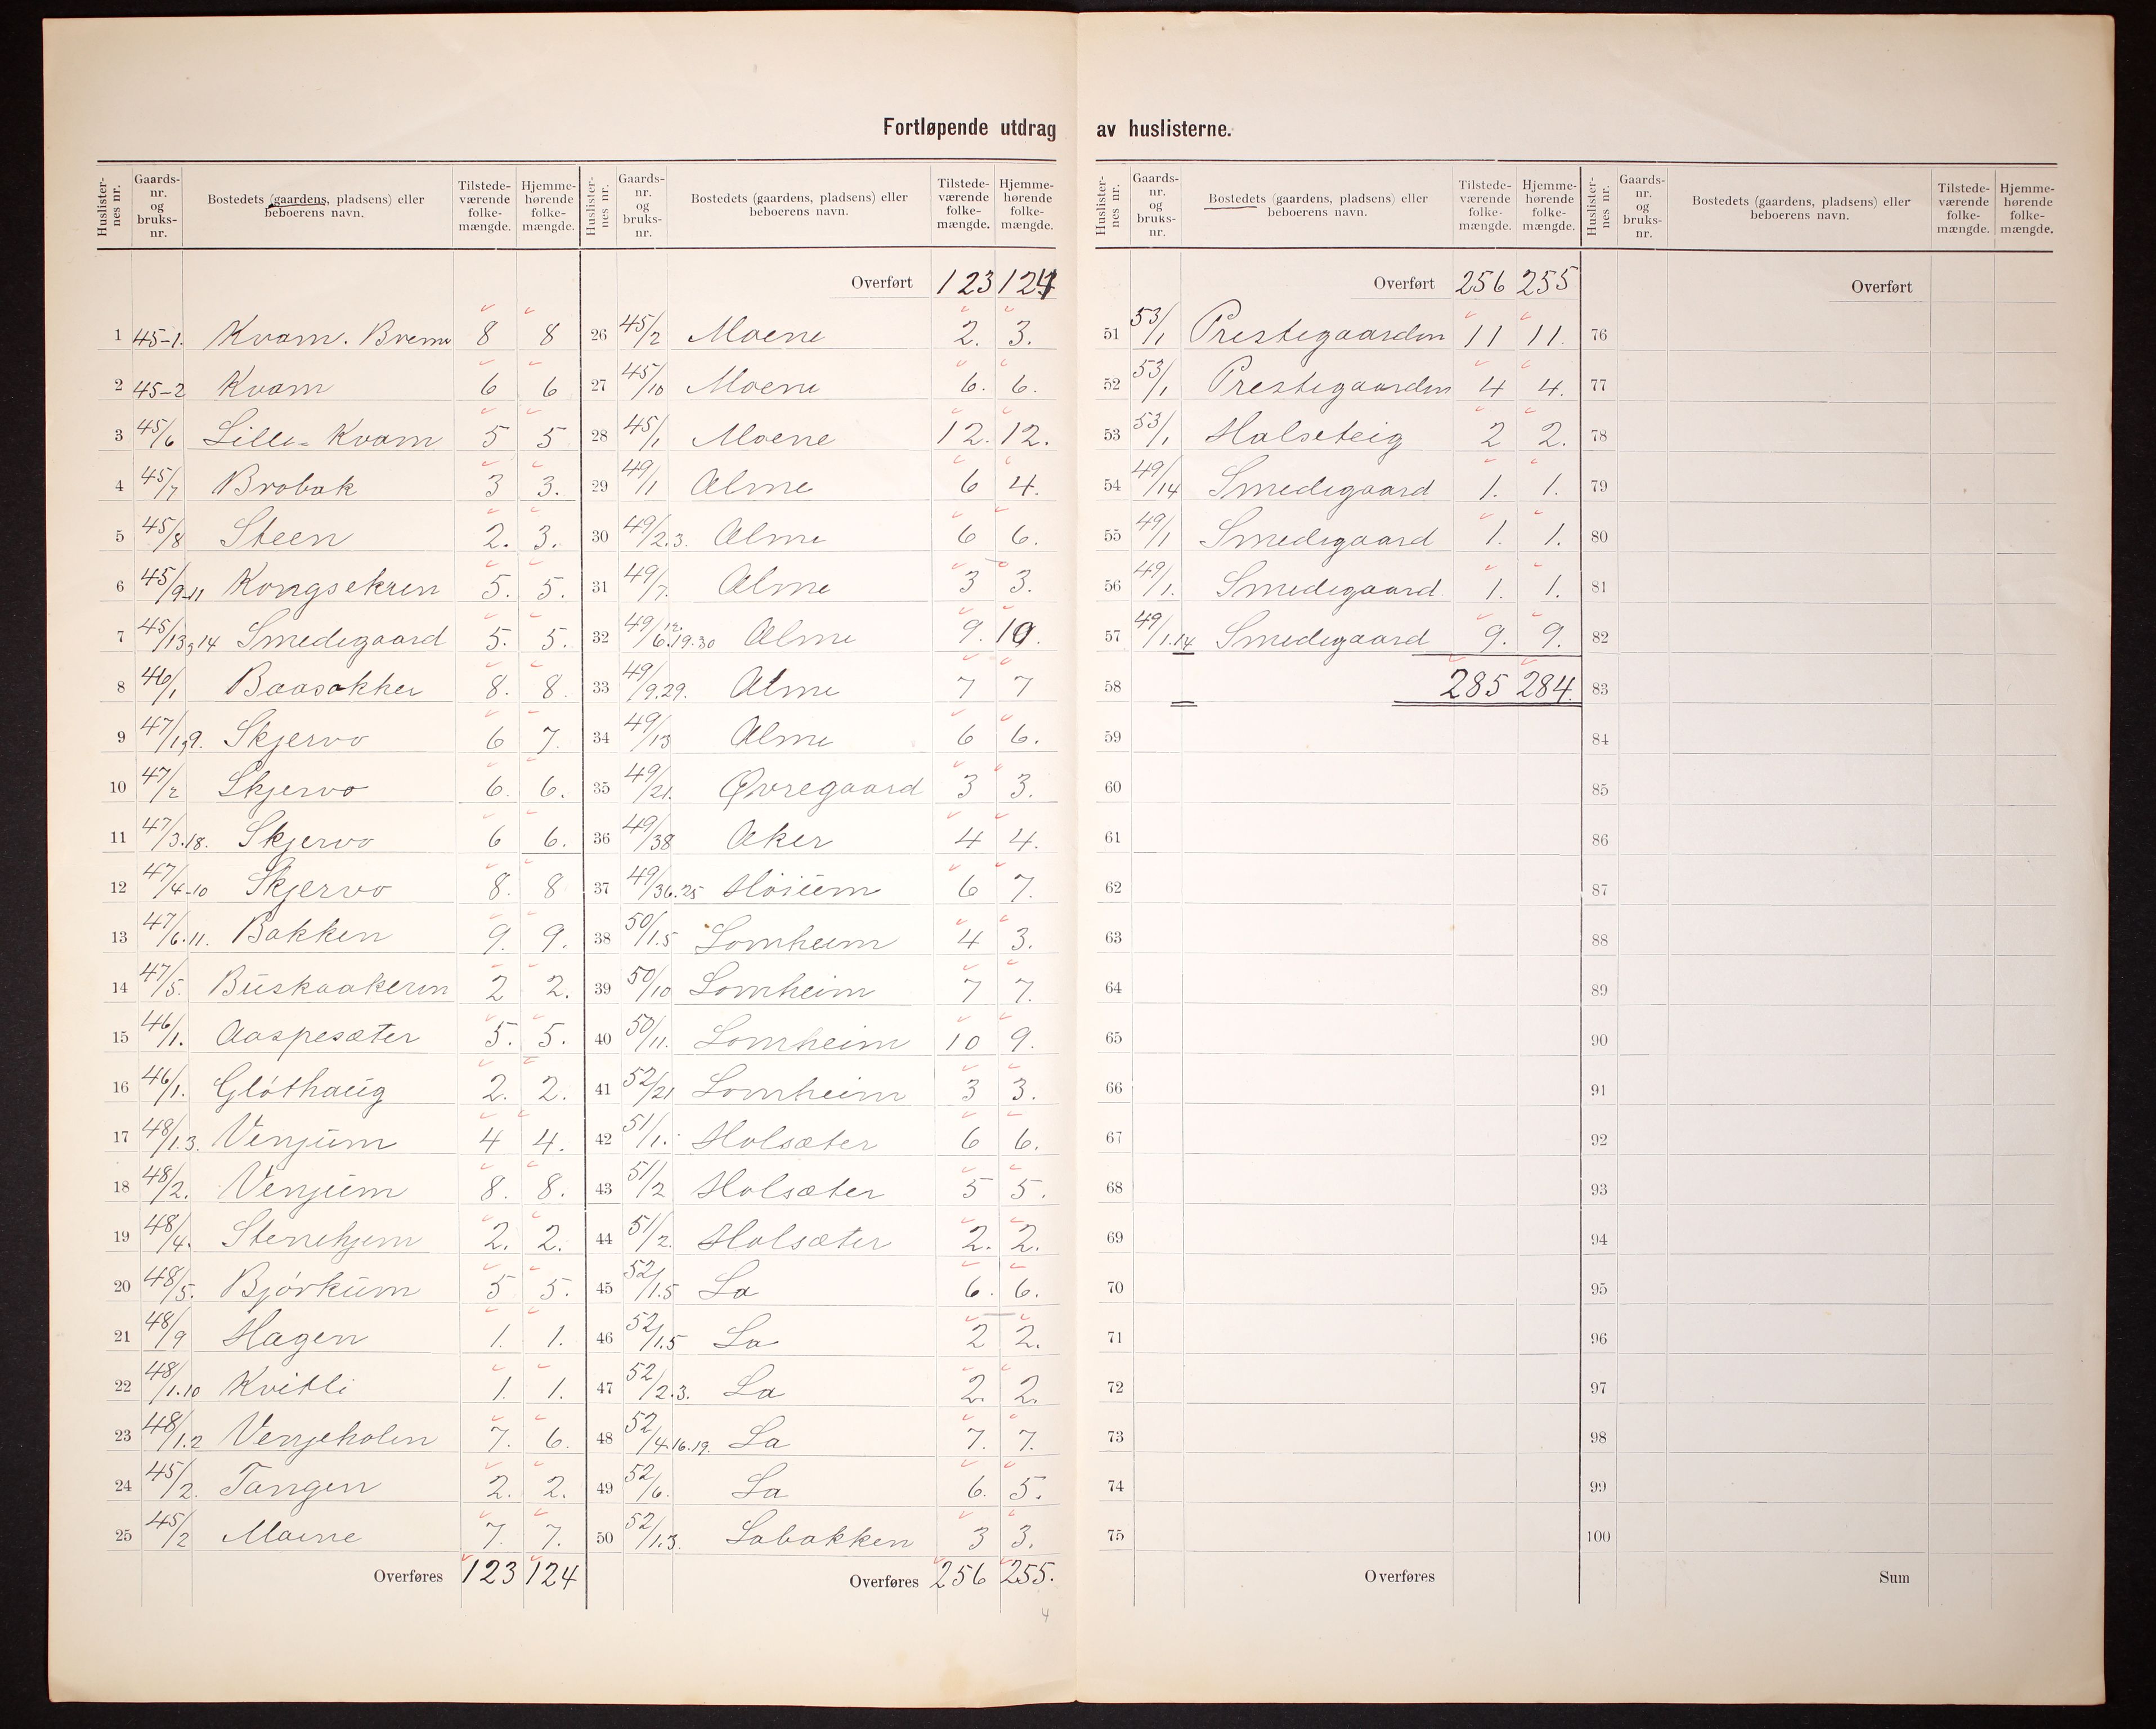 Fortløpende utdrag av huslisterne.
Huslister-nes nr. Gaards-nr. og bruks-nr. Bostedets (gaardens, pladsens) eller beboerens navn. Tilstede-værende folke-mængde. Hjemme-hørende folke-mængde.
1 45-1. Kvam. Breme 8 8
2 45-2 Kvam 6 6
3 45/6 Lille-Kvam 5 5
4 45/7 Brobak 3 3.
5 45/8 Steen 2. 3.
6 45/9-11 Kongsekren 5. 5.
7 45/13,14 Smedegaard 5. 5.
8 46/1 Baasakker 8. 8.
9 47/1,9. Skjervo 6 7.
10 47/2 Skjervo 6. 6.
11 47/3.18. Skjervo 6 6.
12 47/4-10 Skjervo 8. 8
13 47/6.11. Bakken 9. 9.
14 47/5. Buskaakeren 2 2.
15 46/1. Aaspesæter 5. 5.
16 46/1. Gløthaug 2. 2.
17 48/1.3. Venjum 4 4.
18 48/2. Venjum 8. 8.
19 48/4. Stenehjem 2. 2.
20 48/5. Bjørkum 5 5.
21 48/9 Hagen 1. 1.
22 48/1.10 Kvitli 1. 1.
23 48/1.2 Venjeholen 7. 6.
24 45/2. Tangen 2. 2.
25 45/2 Moene 7. 7.
Overføres 123 124
Huslister-nes nr. Gaards-nr. og bruks-nr. Bostedets (gaardens, pladsens) eller beboerens navn. Tilstede-værende folke-mængde. Hjemme-hørende folke-mængde.
Overført 123 124
26 45/2 Moene 2. 3.
27 45/10 Moene 6. 6.
28 45/1 Moene 12. 12.
29 49/1 Alme 6 4.
30 49/2.3. Alme 6 6.
31 49/7. Alme 3 3.
32 49/6.12.19.30 Alme 9. 10.
33 49/9.29. Alme 7 7
34 49/13 Alme 6 6.
35 49/21. Øvregaard 3 3.
36 49/38 Aker 4 4.
37 49/36.25 Høium 6 7.
38 50/1.5 Lomheim 4 3.
39 50/10 Lomheim 7 7.
40 50/11. Lomheim 10 9.
41 52/21 Lomheim 3 3.
42 51/1. Holsæter 6 6.
43 51/2 Holsæter 5 5.
44 51/2. Holsæter 2. 2.
45 52/1.5 La 6. 6.
46 52/1.5 La 2 2.
47 52/2.3. La 2. 2.
48 52/4.16.19. La 7. 7.
49 52/6. La 6. 5.
50 52/1.3. Labakken 3 3.
Overføres 256 255.
4
Huslister-nes nr. Gaards-nr. og bruks-nr. Bostedets (gaardens, pladsens) eller beboerens navn. Tilstede-værende folke-mængde. Hjemme-hørende folke-mængde.
Overført 256 255
51 53/1 Prestegaarden 11 11.
52 53/1 Prestegaarden 4 4.
53 53/1 Halseteig 2 2.
54 49/14 Smedegaard 1. 1.
55 49/1 Smedegaard 1. 1.
56 49/1. Smedegaard. 1. 1.
57 49/1.14 Smedegaard 9. 9.
58 285 284.
59
60
61
62
63
64
65
66
67
68
69
70
71
72
73
74
75
Overføres
Huslister-nes nr. Gaards-nr. og bruks-nr. Bostedets (gaardens, pladsens) eller beboerens navn. Tilstede-værende folke-mængde. Hjemme-hørende folke-mængde.
Overført
76
77
78
79
80
81
82
83
84
85
86
87
88
89
90
91
92
93
94
95
96
97
98
99
100
Sum